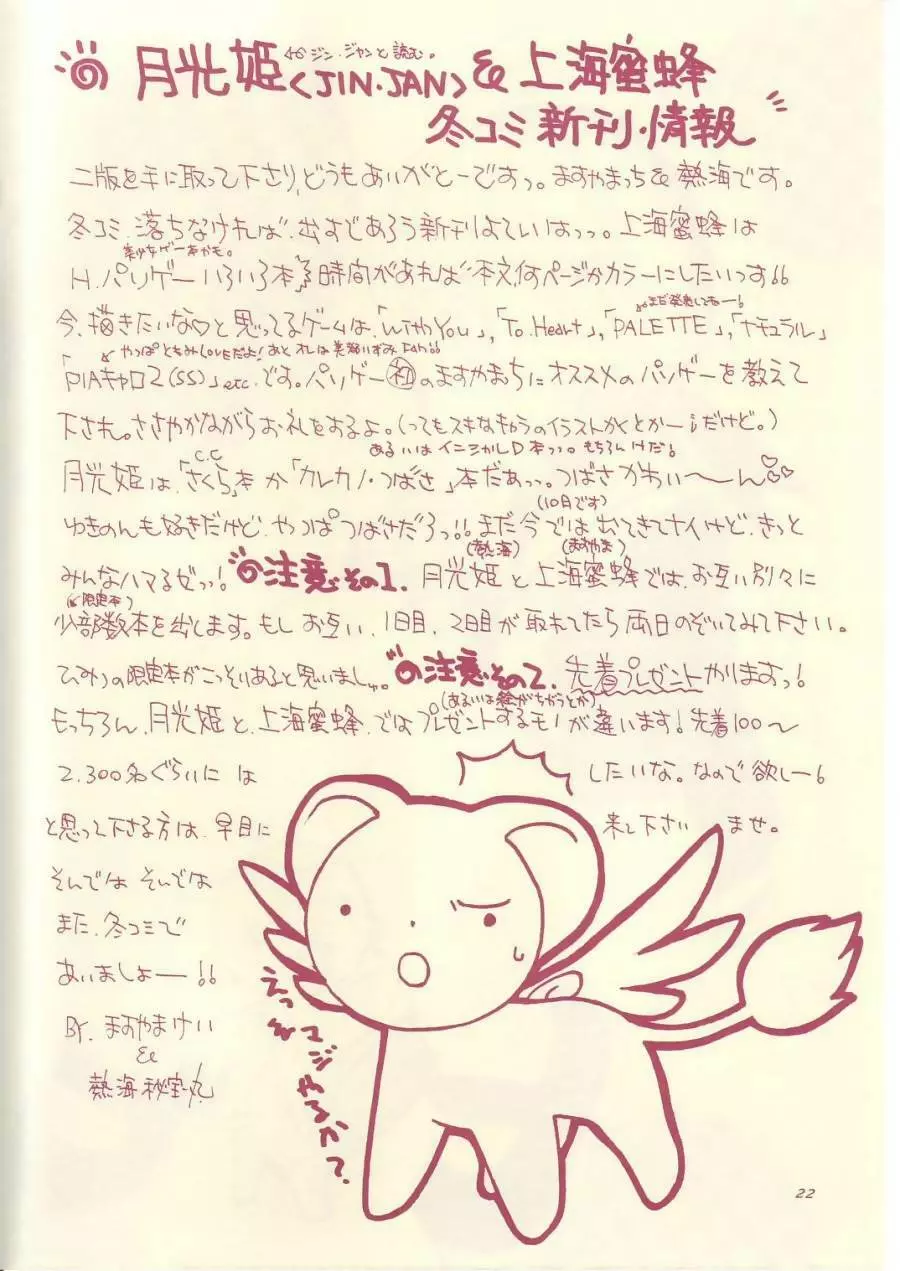 月光姫<JIN・JAN>&上海蜜蜂
←ジン・ジャンと読む。
冬コミ新刊・情報
二版を手に取って下さり、どうもあいがとーですっ。ますやまっち&熱海です。
冬コミ、落ちなければ、出すであろう新刊よていはっっ。上海蜜蜂は
美少女ゲー本かも。
H.パソゲーいろいろ本 時間があれば本文何ページかカラーにしたいっす!!
まだ発売してねー!
今、描きたいな♡と思ってるゲームは、「With You」,「To Heart」,「PALETTE」,「ナチュラル」
やっぱともみLOVEだよ!あと オレは美都いずみ FAN!!
「PIAキャロ2(SS)」etc.です。パソゲー初のますやまっちにオススメのパソゲーを教えて
下され。ささやかながらお礼をするよ。(ってもスキなキャラのイラストかくとかー!だけど。)
あるいは イニシャルD 本っっ。もちろんけだ!
C.C
月光姫は、「さくら」本か「カレカノ・つばさ」本だぁっっ。つばさかわいぃ〜〜ん♡♡
(10日です)
ゆきのんも好きだけど、やっぱつばさだろっ!!まだ今では出てきてナイけど、きっと
(熱海) (ますやま)
みんなハマるぜっっ!注意その1. 月光姫と上海蜜蜂では、お互い別々に
(限定本)
少部数本を出します。もしお互い、1日目、2日目が取れてたら両日のぞいてみて下さい。
ひみつの限定本がこっそりあると思いましゅ。注意その2. 先着プレゼントがありますっ!
(あるいは絵がちがうとか)
もっちろん、月光姫と、上海蜜蜂、ではプレゼントするモノが違います!先着100〜
2.300名ぐらいには したいな。なので欲しー!
と思って下さる方は、早目に 来て下さいませ。
そんでは そいでは
また、冬コミで
あいましょー!!
By. ますやまけい
&
熱海秘宝丸
マジやるか?
22